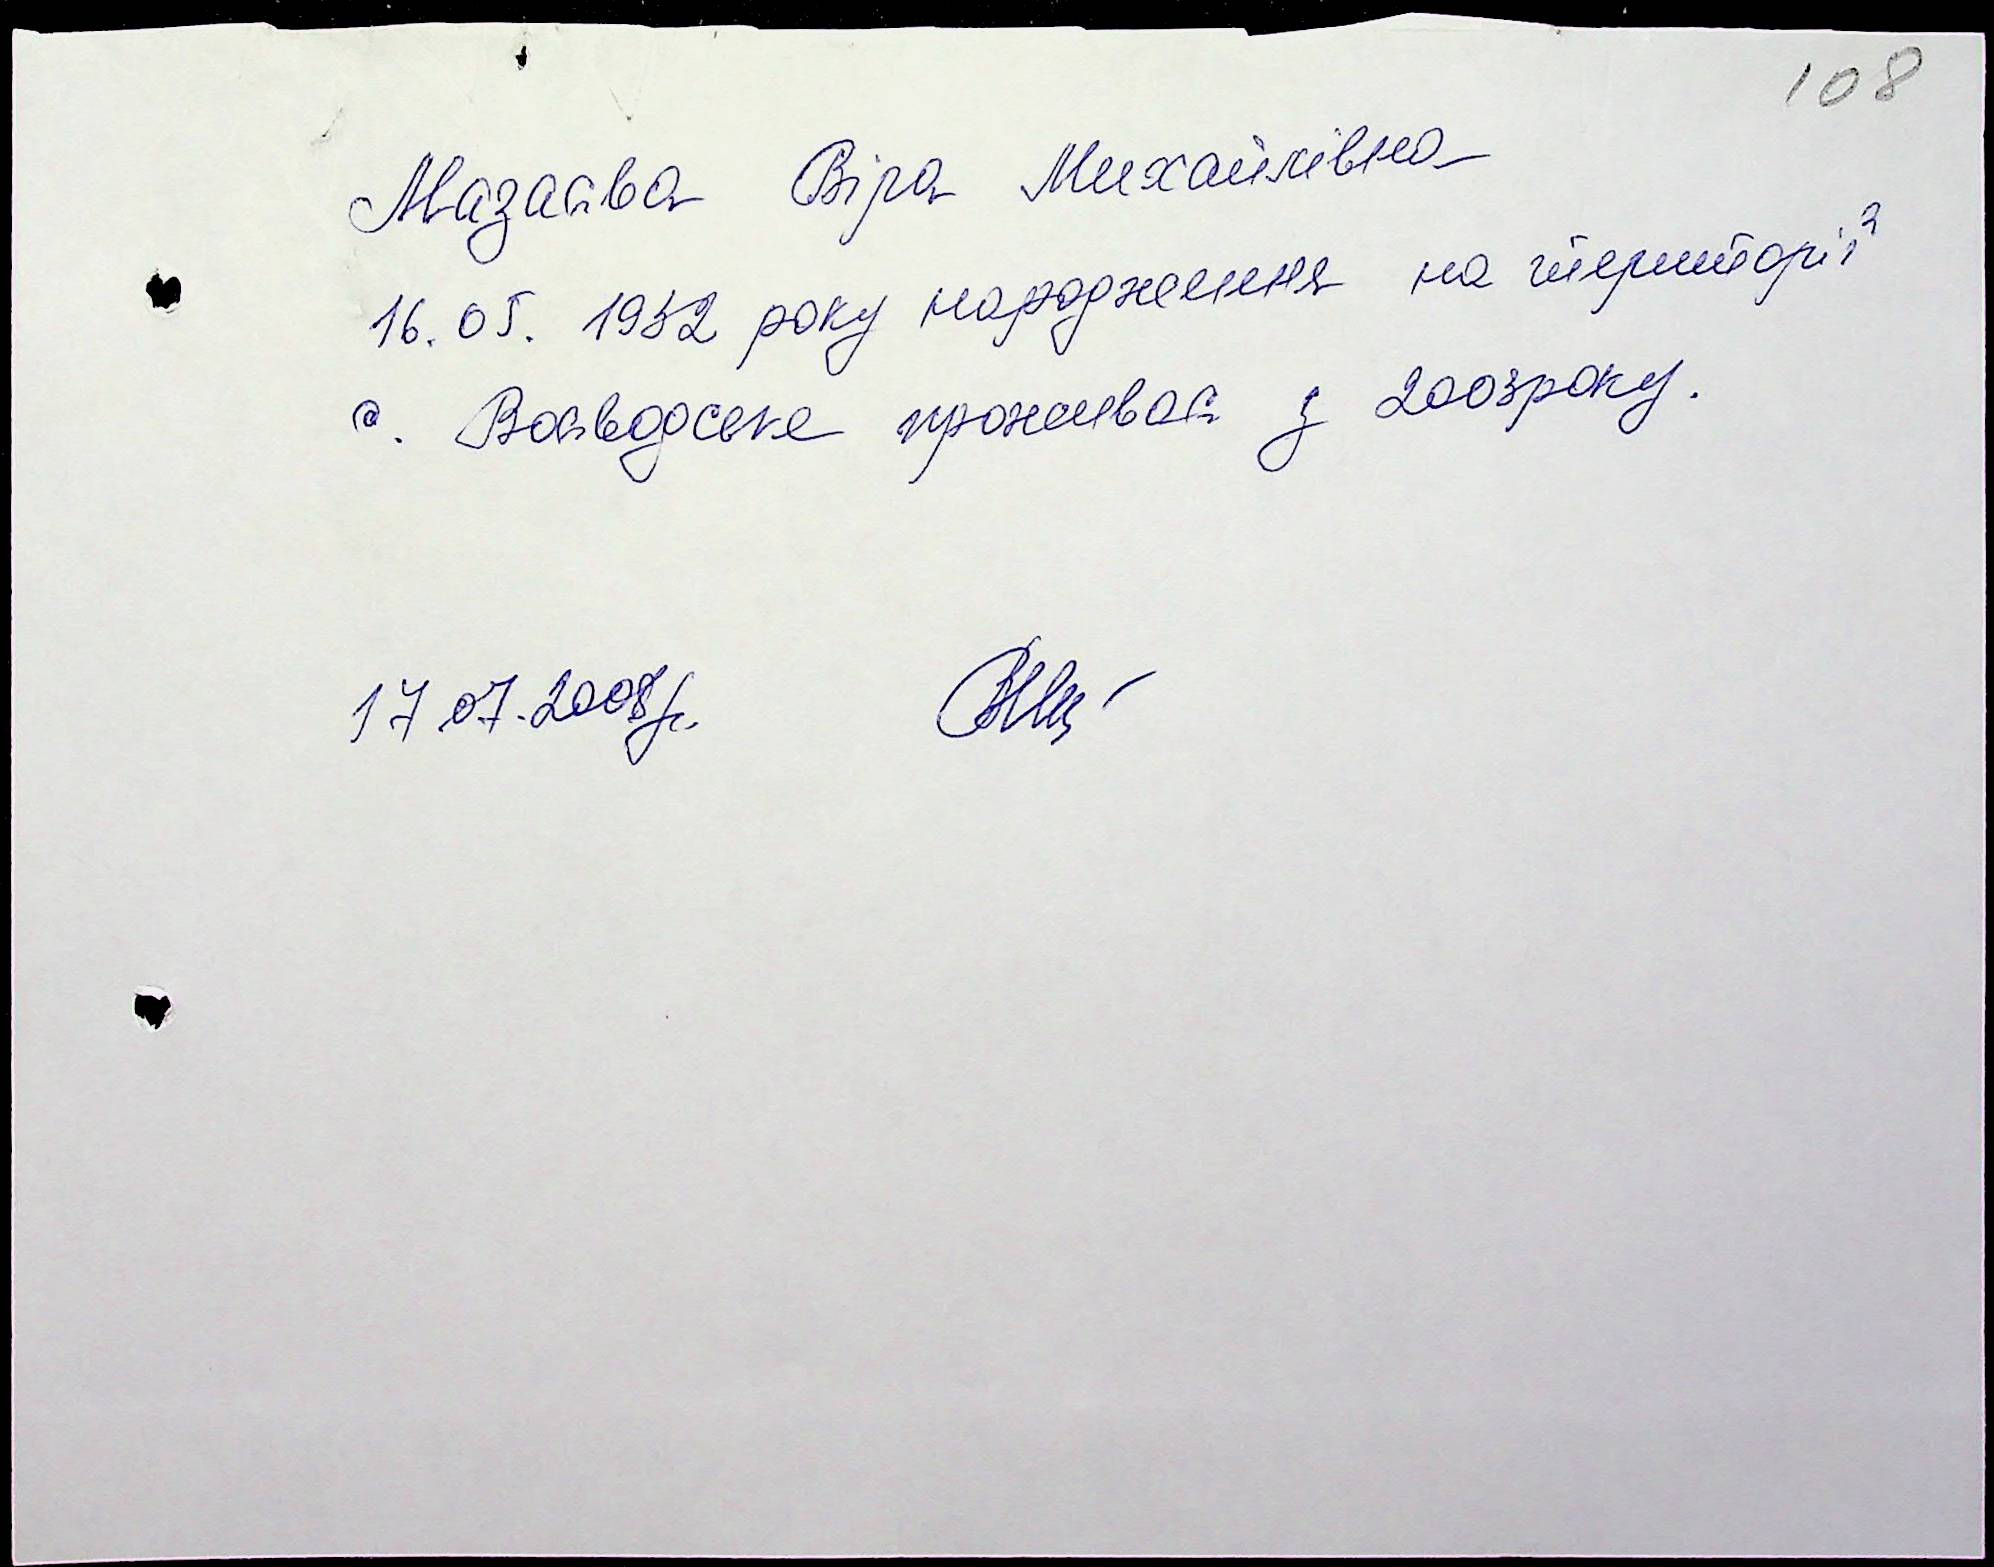 108
Мазаєва Віра Михайлівна
16.05. 1952 року народження на території
с. Воєводське проживає з 2003року.
17.07.2008р.